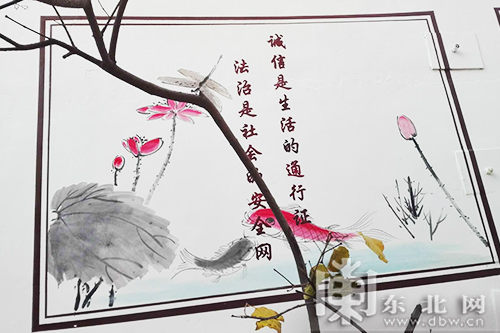 诚信是生活的通行证
法治是社会的安全网
东北网
www.dbw.cn